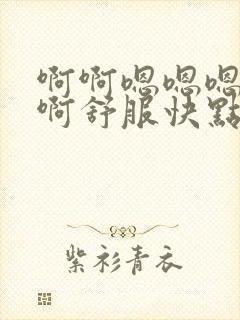 啊啊嗯嗯嗯
啊舒服快點
紫衫青衣